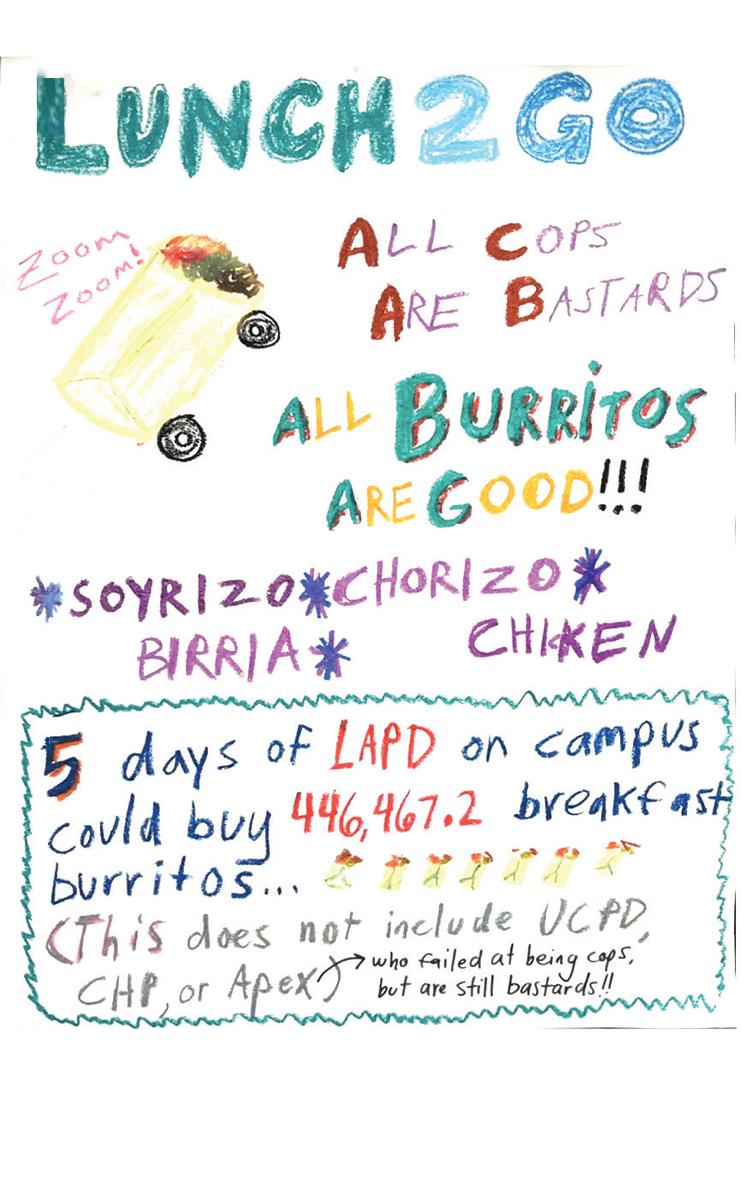 LUNCH2GO
Zoom
Zoom!
ALL COPS
ARE BASTARDS
ALL BURRITOS
ARE GOOD!!!
*SOYRIZO*CHORIZO*
BIRRIA* CHIKEN
5 days of LAPD on campus
could buy 446,467.2 breakfast
burritos...
(This does not include UCPD,
CHP, or Apex)
→ who failed at being cops,
but are still bastards!!